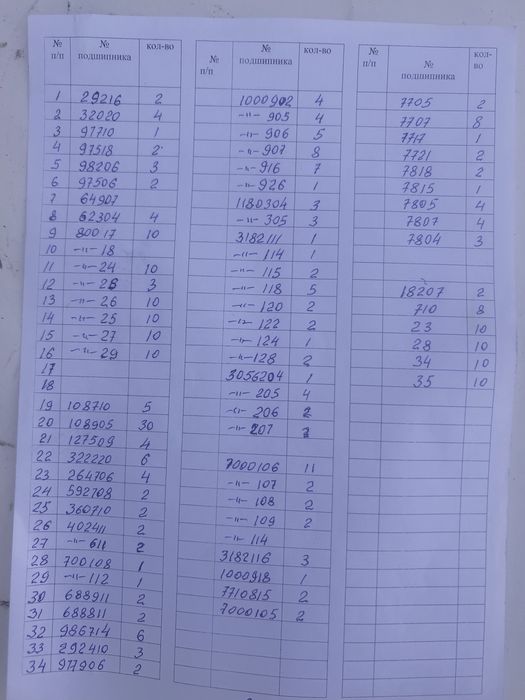 № п/п № подшипника кол-во
1 29216 2
2 32020 4
3 97710 1
4 97518 2
5 98206 3
6 97506 2
7 64907
8 62304 4
9 80017 10
10 -"- 18
11 -"- 24 10
12 -"- 26 3
13 -"- 26 10
14 -"- 25 10
15 -"- 27 10
16 -"- 29 10
17
18
19 108710 5
20 108905 30
21 127509 4
22 322220 6
23 264706 4
24 592708 2
25 360710 2
26 402411 2
27 -"- 611 2
28 700108 1
29 -"- 112 1
30 688911 2
31 688811 2
32 986714 6
33 292410 3
34 977906 2
№ п/п № подшипника кол-во
1000902 4
-"- 905 4
-"- 906 5
-"- 907 8
-"- 916 7
-"- 926 1
1180304 3
-"- 305 3
3182111 1
-"- 114 1
-"- 115 2
-"- 118 5
-"- 120 2
-"- 122 2
-"- 124 1
-"- 128 2
3056204 1
-"- 205 4
-"- 206 2
-"- 207
7000106 11
-"- 107 2
-"- 108 2
-"- 109 2
-"- 114
3182116 3
1000918 1
7710815 2
7000105 2
№ п/п № подшипника кол-во
7705 2
7707 8
7717 1
7721 2
7818 2
7815 1
7805 4
7807 4
7804 3
18207 2
710 8
23 10
28 10
34 10
35 10